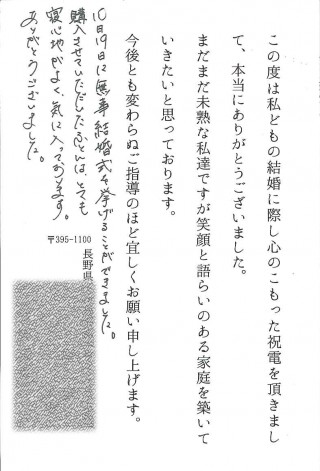 この度は私どもの結婚に際し心のこもった祝電を頂きまし
て、本当にありがとうございました。
まだまだ未熟な私達ですが笑顔と語らいのある家庭を築いて
いきたいと思っております。
今後とも変わらぬご指導のほど宜しくお願い申し上げます。
10日19日に無事結婚式を挙げることができました。
購入させていただいたふとんは、とても
寝心地がよく、気に入っております。
ありがとうございました。
〒395-1100
長野県